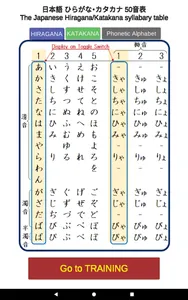 日本語 ひらがな・カタカナ 50音表
The Japanese Hiragana/Katakana syllabary table
HIRAGANA KATAKANA Phonetic Alphabet
Display on Toggle Switch 拗音
1 2 3 4 5 1 2 3
清音
あ い う え お - - -
か き く け こ きゃ きゅ きょ
さ し す せ そ しゃ しゅ しょ
た ち つ て と ちゃ ちゅ ちょ
な に ぬ ね の にゃ にゅ にょ
は ひ ふ へ ほ ひゃ ひゅ ひょ
ま み む め も みゃ みゅ みょ
や ゆ よ - - -
ら り る れ ろ りゃ りゅ りょ
わ を - - -
ん - - -
濁音
が ぎ ぐ げ ご ぎゃ ぎゅ ぎょ
ざ じ ず ぜ ぞ じゃ じゅ じょ
だ ぢ づ で ど ぢゃ ぢゅ ぢょ
ば び ぶ べ ぼ びゃ びゅ びょ
半濁音
ぱ ぴ ぷ ぺ ぽ ぴゃ ぴゅ ぴょ
Go to TRAINING